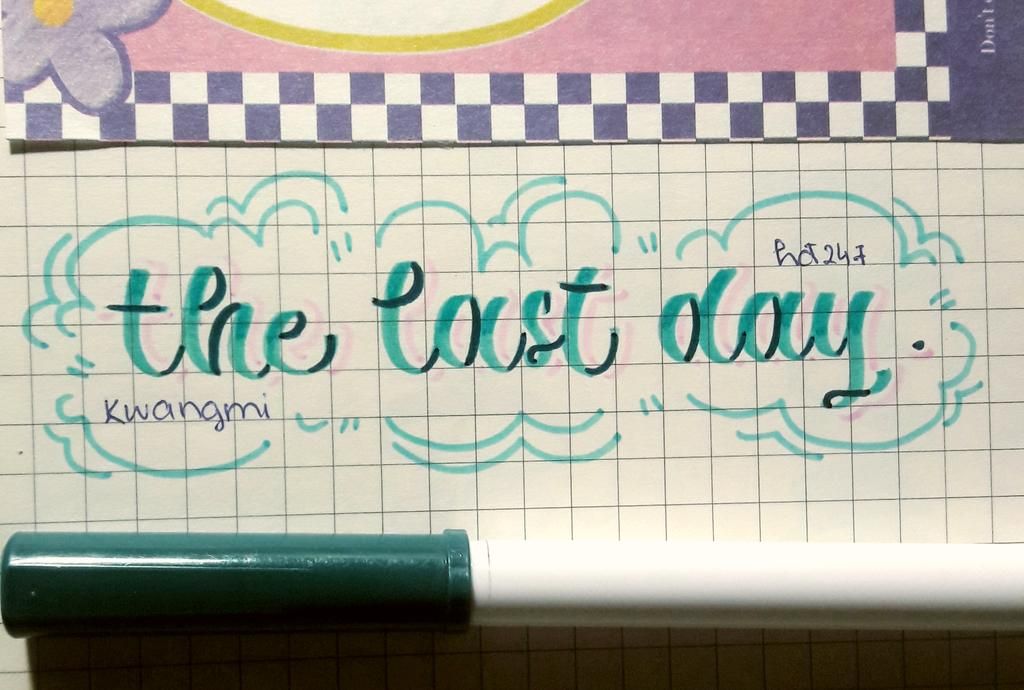 Don't
hdt247
the last day.
kwangmi